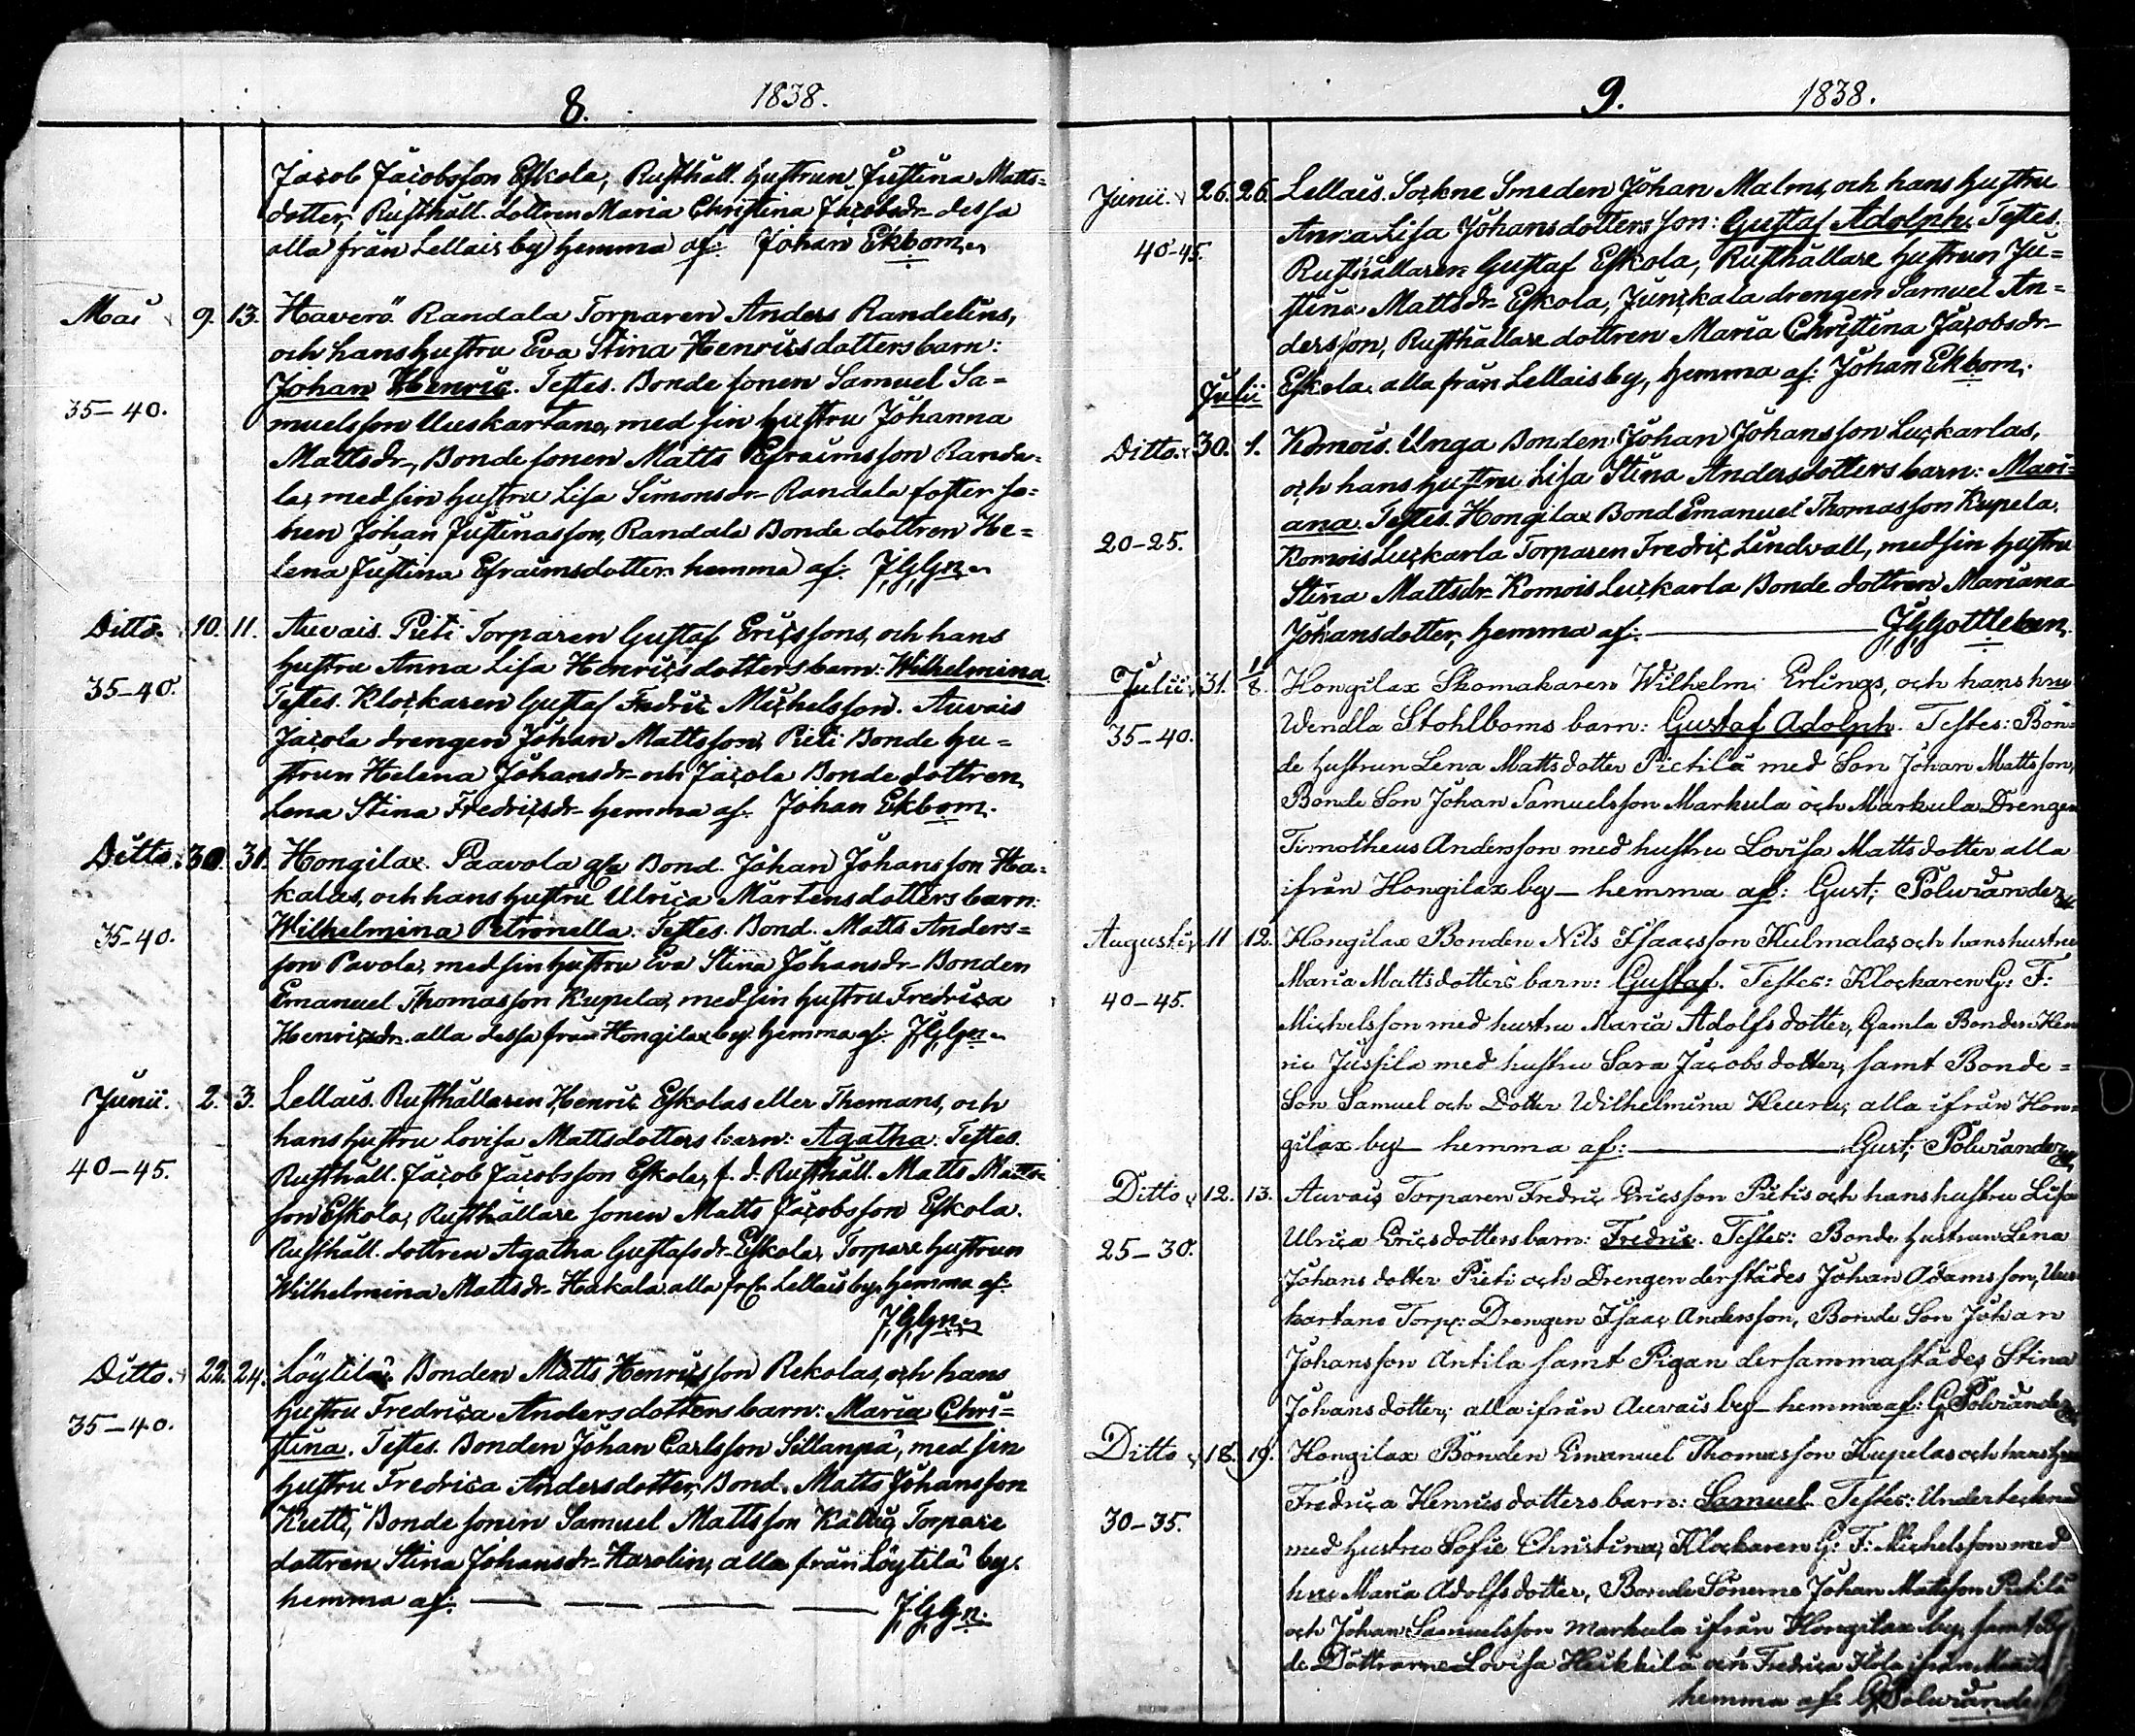 8. 1838.
Jacob Jacobsson Eskola, Rusthåll. hustrun Justina Matts=
dotter, Rusthåll. dottren Maria Christina Jacobsdr dessa
alla från Lellais by hemma af: Johan Ekbom
Mai 9. 13. Haverö Randala Torparen Anders Randelins,
och hans hustru Eva Stina Henricsdotters barn:
Johan Henric. Testes. Bonde sonen Samuel Sa=
35-40.
muelsson Uuskartano, med sin hustru Johanna
Mattsdr, Bonde sonen Matts Efraimsson Randa=
la, med sin hustru Lisa Simonsdr Randala foster so=
nen Johan Justinasson, Randala Bonde dottren He=
lena Justina Efraimsdotter hemma af: J,G,Gn
Ditto. 10. 11. Auvais. Pieti Torparen Gustaf Ericssons, och hans
hustru Anna Lisa Henricsdotters barn: Wilhelmina.
35-40. Testes. Klockaren Gustaf Fredric Michelsson. Auvais
Jacola drengen Johan Mattsson, Pieti Bonde hu=
strun Helena Johansdr och Jacola Bonde dottren
Lena Stina Fredricsdr hemma af. Johan Ekbom.
Ditto. 30. 31. Hongilax. Paavola Bond. Johan Johansson Ha=
kalas, och hans hustru Ulrica Mårtensdotters barn:
35-40. Wilhelmina Petronella. Testes. Bond. Matts Anders=
son Pavola, med sin hustru Eva Stina Johansdr Bonden
Emanuel Thomasson Kupela, med sin hustru Fredrica
Henricsdr. alla dessa från Hongilax by. hemma af: J,G,Gn
Junii. 2. 3. Lellais. Rusthållaren Henric Eskolas eller Thomans, och
hans hustru Lovisa Mattsdotters barn: Agatha. Testes.
40-45. Rusthåll. Jacob Jacobsson Eskola, f. d. Rusthåll. Matts Matts=
son Eskola, Rusthållare sonen Matts Jacobsson Eskola.
Rusthåll. dottren Agatha Gustafsdr Eskola, Torpare hustrun
Wilhelmina Mattsdr Hakala alla från Lellais by, hemma af:
J,G,Gn
Ditto. 22. 24. Löytilä. Bonden Matts Henricsson Rekolas, och hans
hustru Fredrica Andersdotters barn: Maria Chri=
35-40.
stina. Testes. Bonden Johan Carlsson Sillanpä, med sin
hustru Fredrica Andersdotter, Bond. Matts Johansson
Kutti, Bonde sonen Samuel Mattsson Torpare
dottren Stina Johansdr Harolin, alla från Löytilä by.
hemma af: — — — — J,G,Gn.
9. 1838.
Junii. 26. 26. Lellais. Sockne Smeden Johan Malms, och hans hustru
Anna Lisa Johansdotters son: Gustaf Adolph. Testes.
40-45.
Rusthållaren Gustaf Eskola, Rusthållare hustrun Ju=
stina Mattsdr Eskola, Junckala drengen Samuel An=
dersson, Rusthållare dottren Maria Christina Jacobsdr
Julii Eskola. alla från Lellais by, hemma af: Johan Ekbom.
Ditto. 30. 1. Komois. Unga Bonden Johan Johansson Luckarlas,
och hans hustru Lisa Stina Andersdotters barn: Mari=
ana. Testes. Hongilax Bond Emanuel Thomasson Kupela,
20-25.
Komois Luckarla Torparen Fredric Lindvall, med sin hustru
Stina Mattsdr Komois Luckarla Bonde dottren Mariana
Johansdotter, hemma af. — J,G,Gottleben.
Julii 31. 1/8. Hongilax Skomakaren Wilhelm Erlings, och hans hru
35-40. Wendla Stohlboms barn: Gustaf Adolph. Testes: Bon=
de hustrun Lena Mattsdotter Pietilä med Son Johan Mattsson,
Bonde Son Johan Samuelsson Markula och Markula Drengen
Timotheus Andersson med hustru Lovisa Mattsdotter alla
ifrån Hongilax by — hemma af: Gust; Polviander
Augusti 11 12. Hongilax Bonden Nils Isaacsson Kulmalas och hans hustru
Maria Mattsdotters barn: Gustaf. Testes: Klockaren G: F:
40-45.
Michelsson med hustru Maria Adolfsdotter, Gamla Bonden Hen
ric Jussila med hustru Sara Jacobsdotter, samt Bonde=
Son Samuel och Dotter Wilhelmina alla ifrån Hon=
gilax by — hemma af: — Gust; Polviander
Ditto 12. 13. Auvais Torparen Fredric Ericsson Pietis och hans hustru Lisa
Ulrica Ericsdotters barn: Fredric. Testes: Bonde hustrun Lena
25-30.
Johansdotter Pieti och Drengen derstädes Johan Adamsson, Uus
kartano Torp: Drengen Isaac Andersson, Bonde Son Johan
Johansson Antila samt Pigan dersammastädes Stina
Johansdotter, alla ifrån Auvais by — hemma af: G, Polviander
Ditto 18. 19. Hongilax Bonden Emanuel Thomasson Kupelas och hans hru
Fredrica Henricsdotters barn: Samuel. Testes: Undertecknad
30-35.
med hustru Sofie Christina, Klockaren G: F: Michelsson med
hru Maria Adolfsdotter, Bonde Sönerne Johan Mattsson Pietilä
och Johan Samuelsson Markula ifrån Hongilax by, samt
de Döttrarne Lovisa Heikkilä och Fredrica ifrån
hemma af: G, Polviander